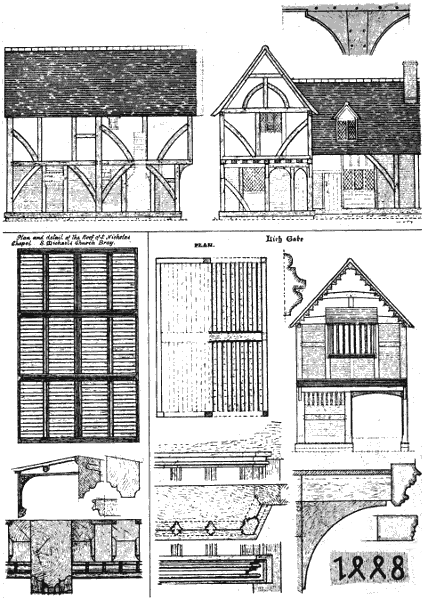 Plan and detail of the Roof of S. Nicholas
Chapel S. Michaels Church Bray.
PLAN.
Lich Gate
1448